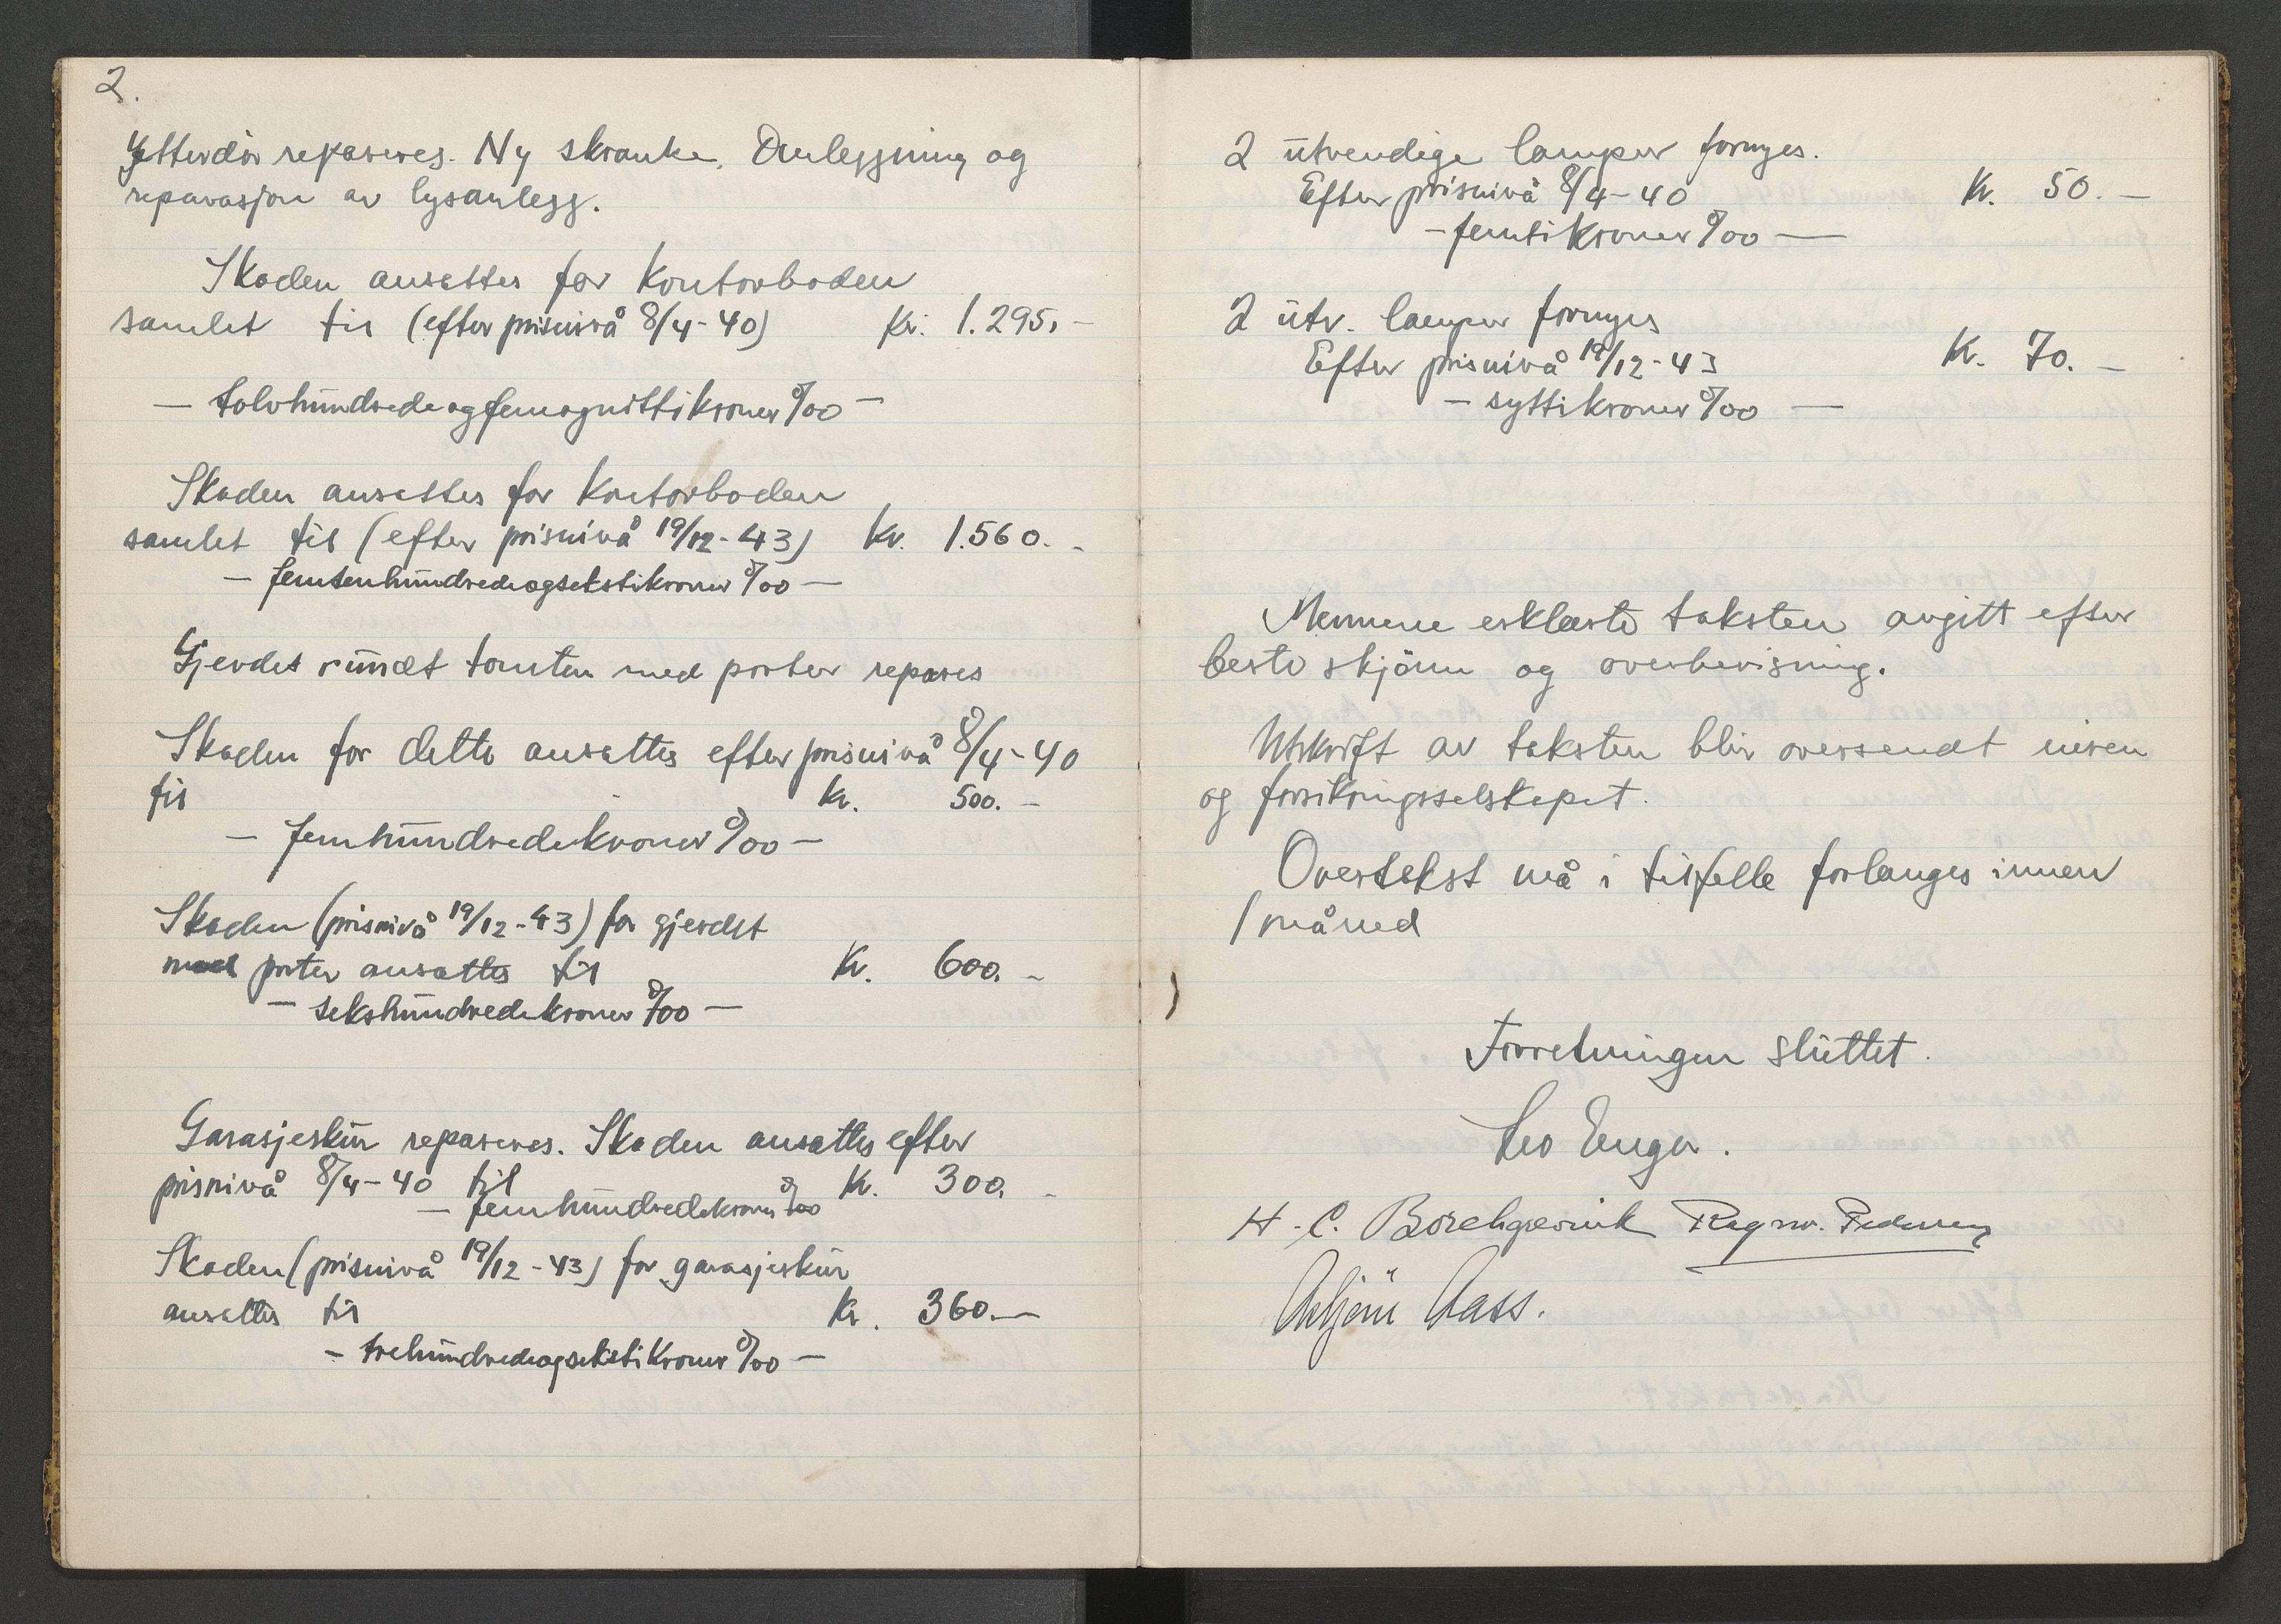 2.
Ytterdör repareres. Ny skranke. Omleggning og
reparasjon av lysanlegg.
Skaden ansettes for Kontorboden
samlet til (efter prisnivå 8/4-40) Kr. 1.295.-
- tolvhundredeogfemognittikroner 0/00 -
Skaden ansettes for Kontorboden
samlet til (efter prisnivå 19/12-43) Kr. 1.560.-
- femtenhundredeogsekstikroner 0/00 -
Gjerdet rundt tomten med porter repares
Skaden for dette ansettes efter prisnivå 8/4-40
til Kr. 500.-
- femhundredekroner 0/00 -
Skaden (prisnivå 19/12-43) for gjerdet
med porter ansettes til Kr. 600.-
- sekshundredekroner 0/00 -
Garasjeskur repareres. Skaden ansettes efter
prisnivå 8/4-40 til Kr. 300.-
- femhundredekroner 0/00
Skaden (prisnivå 19/12-43) for garasjeskur
ansettes til Kr. 360.-
- trehundredeogsekstikroner 0/00 -
2 utvendige lamper fornyes.
Efter prisnivå 8/4-40 Kr. 50.-
- femtikroner 0/00 -
2 utv. lamper fornyes
Efter prisnivå 19/12-43 Kr. 70.-
- syttikroner 0/00 -
Mennene erklærte taksten avgitt efter
beste skjönn og overbevisning.
Utskrift av taksten blir oversendt eieren
og forsikringsselskapet.
Overtakst må i tilfelle forlanges innen
1 måned
Forretningen sluttet.
Leo Enger.
H. C. Borchgrevink Ragnv. Pedersen
Aass.